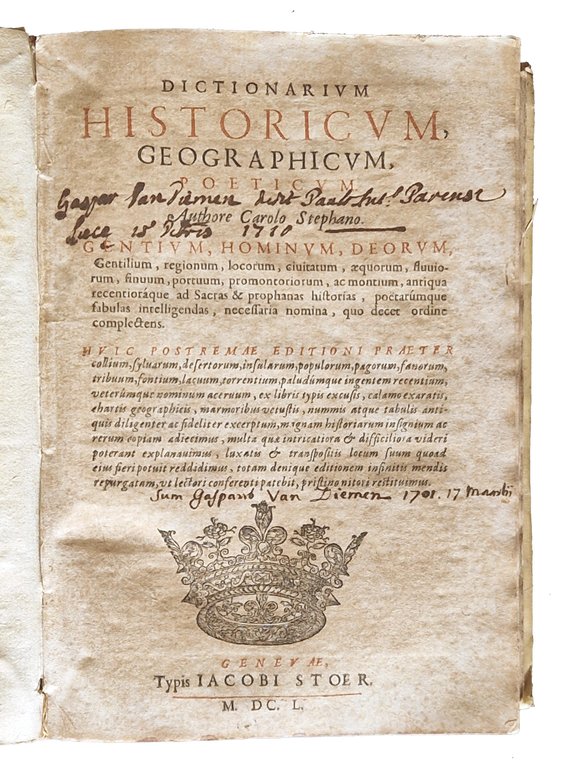 DICTIONARIVM
HISTORICVM,
GEOGRAPHICVM,
POETICVM
Gaspar Van Diemen
Authore Carolo Stephano.
1710
GENTIVM, HOMINVM, DEORVM,
Gentilium, regionum, locorum, ciuitatum, æquorum, fluuio-
rum, sinuum, portuum, promontoriorum, ac montium, antiqua
recentioráque ad Sacras & prophanas historias, poëtarúmque
fabulas intelligendas, necessaria nomina, quo decet ordine
complectens.
HVIC POSTREMAE EDITIONI PRAETER
collium, syluarum, desertorum, insularum, populorum, pagorum, fanorum,
tribuum, fontium, lacuum, torrentium, paludúmque ingentem recentium,
veterúmque nominum aceruum, ex libris typis excusis, calamo exaratis,
chartis geographicis, marmoribus vetustis, nummis atque tabulis anti-
quis diligenter ac fideliter excerptum, magnam historiarum insignium ac
rerum copiam adiecimus, multa quæ intricatiora & difficiliora videri
poterant explanauimus, luxatis & transpositis locum suum quoad
eius fieri potuit reddidimus, totam denique editionem infinitis mendis
repurgatam, vt lectori conferenti patebit, pristino nitori restituimus.
Sum Gaspari Van Diemen 1701. 17 Martii
GENEVAE,
Typis IACOBI STOER.
M. DC. L.